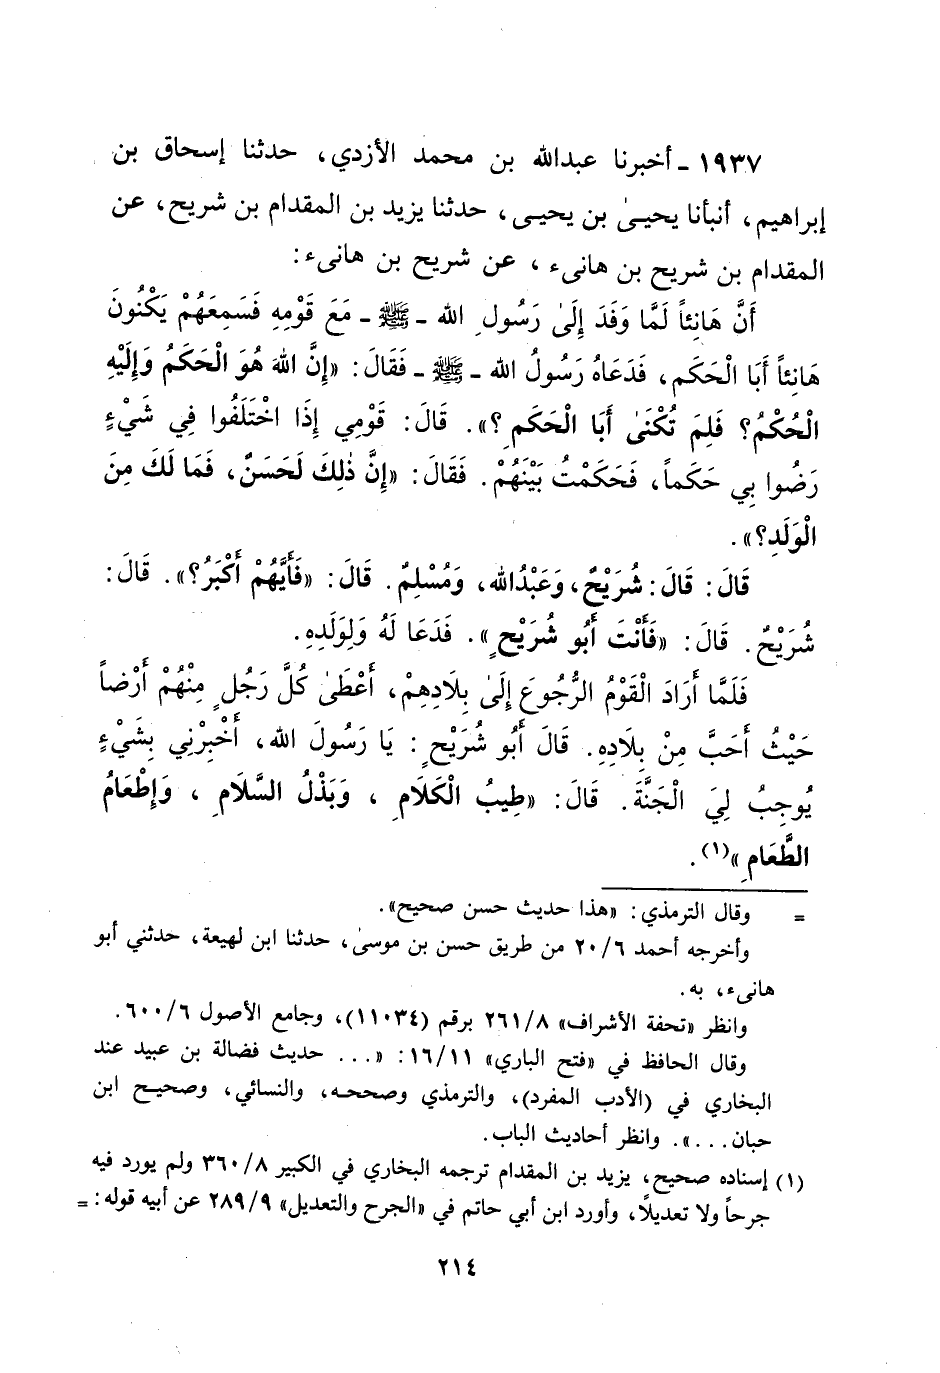 ١٩٣٧ - أخبرنا عبدالله بن محمد الأزدي، حدثنا إسحاق بن
إبراهيم، أنبأنا يحيىٰ بن يحيى، حدثنا يزيد بن المقدام بن شريح، عن
المقدام بن شريح بن هانىء، عن شريح بن هانىء:
أَنَّ هَانِئاً لَمَّا وَفَدَ إِلَىٰ رَسُولِ الله - ﷺ - مَعَ قَوْمِهِ فَسَمِعَهُمْ يَكْنُونَ
هَانِئاً أَبَا الْحَكَمِ، فَدَعَاهُ رَسُولُ الله - ﷺ - فَقَالَ: «إِنَّ اللهَ هُوَ الْحَكَمُ وَإِلَيْهِ
الْحُكْمُ؟ فَلِمَ تُكْنَىٰ أَبَا الْحَكَمِ؟». قَالَ: قَوْمِي إِذَا اخْتَلَفُوا فِي شَيْءٍ
رَضُوا بِي حَكَماً، فَحَكَمْتُ بَيْنَهُمْ. فَقَالَ: «إِنَّ ذٰلِكَ لَحَسَنٌ، فَمَا لَكَ مِنَ
الْوَلَدِ؟».
قَالَ: قَالَ: شُرَيْحٌ، وَعَبْدُالله، وَمُسْلِمٌ. قَالَ: «فَأَيُّهُمْ أَكْبَرُ؟». قَالَ:
شُرَيْحٌ. قَالَ: «فَأَنْتَ أَبُو شُرَيْحٍ». فَدَعَا لَهُ وَلِوَلَدِهِ.
فَلَمَّا أَرَادَ الْقَوْمُ الرُّجُوعَ إِلَىٰ بِلَادِهِمْ، أَعْطَىٰ كُلَّ رَجُلٍ مِنْهُمْ أَرْضاً
حَيْثُ أَحَبَّ مِنْ بِلَادِهِ. قَالَ أَبُو شُرَيْحٍ: يَا رَسُولَ الله، أَخْبِرْنِي بِشَيْءٍ
يُوجِبُ لِيَ الْجَنَّةَ. قَالَ: «طِيبُ الْكَلَامِ، وَبَذْلُ السَّلَامِ، وَإِطْعَامُ
الطَّعَامِ»(١).
= وقال الترمذي: «هذا حديث حسن صحيح».
وأخرجه أحمد ٢٠/٦ من طريق حسن بن موسىٰ، حدثنا ابن لهيعة، حدثني أبو
هانىء، به.
وانظر «تحفة الأشراف» ٢٦١/٨ برقم (١١٠٣٤)، وجامع الأصول ٦٠٠/٦.
وقال الحافظ في «فتح الباري» ١٦/١١: «... حديث فضالة بن عبيد عند
البخاري في (الأدب المفرد)، والترمذي وصححه، والنسائي، وصحيح ابن
حبان...». وانظر أحاديث الباب.
(١) إسناده صحيح، يزيد بن المقدام ترجمه البخاري في الكبير ٣٦٠/٨ ولم يورد فيه
جرحاً ولا تعديلًا، وأورد ابن أبي حاتم في «الجرح والتعديل» ٢٨٩/٩ عن أبيه قوله: =
٢١٤